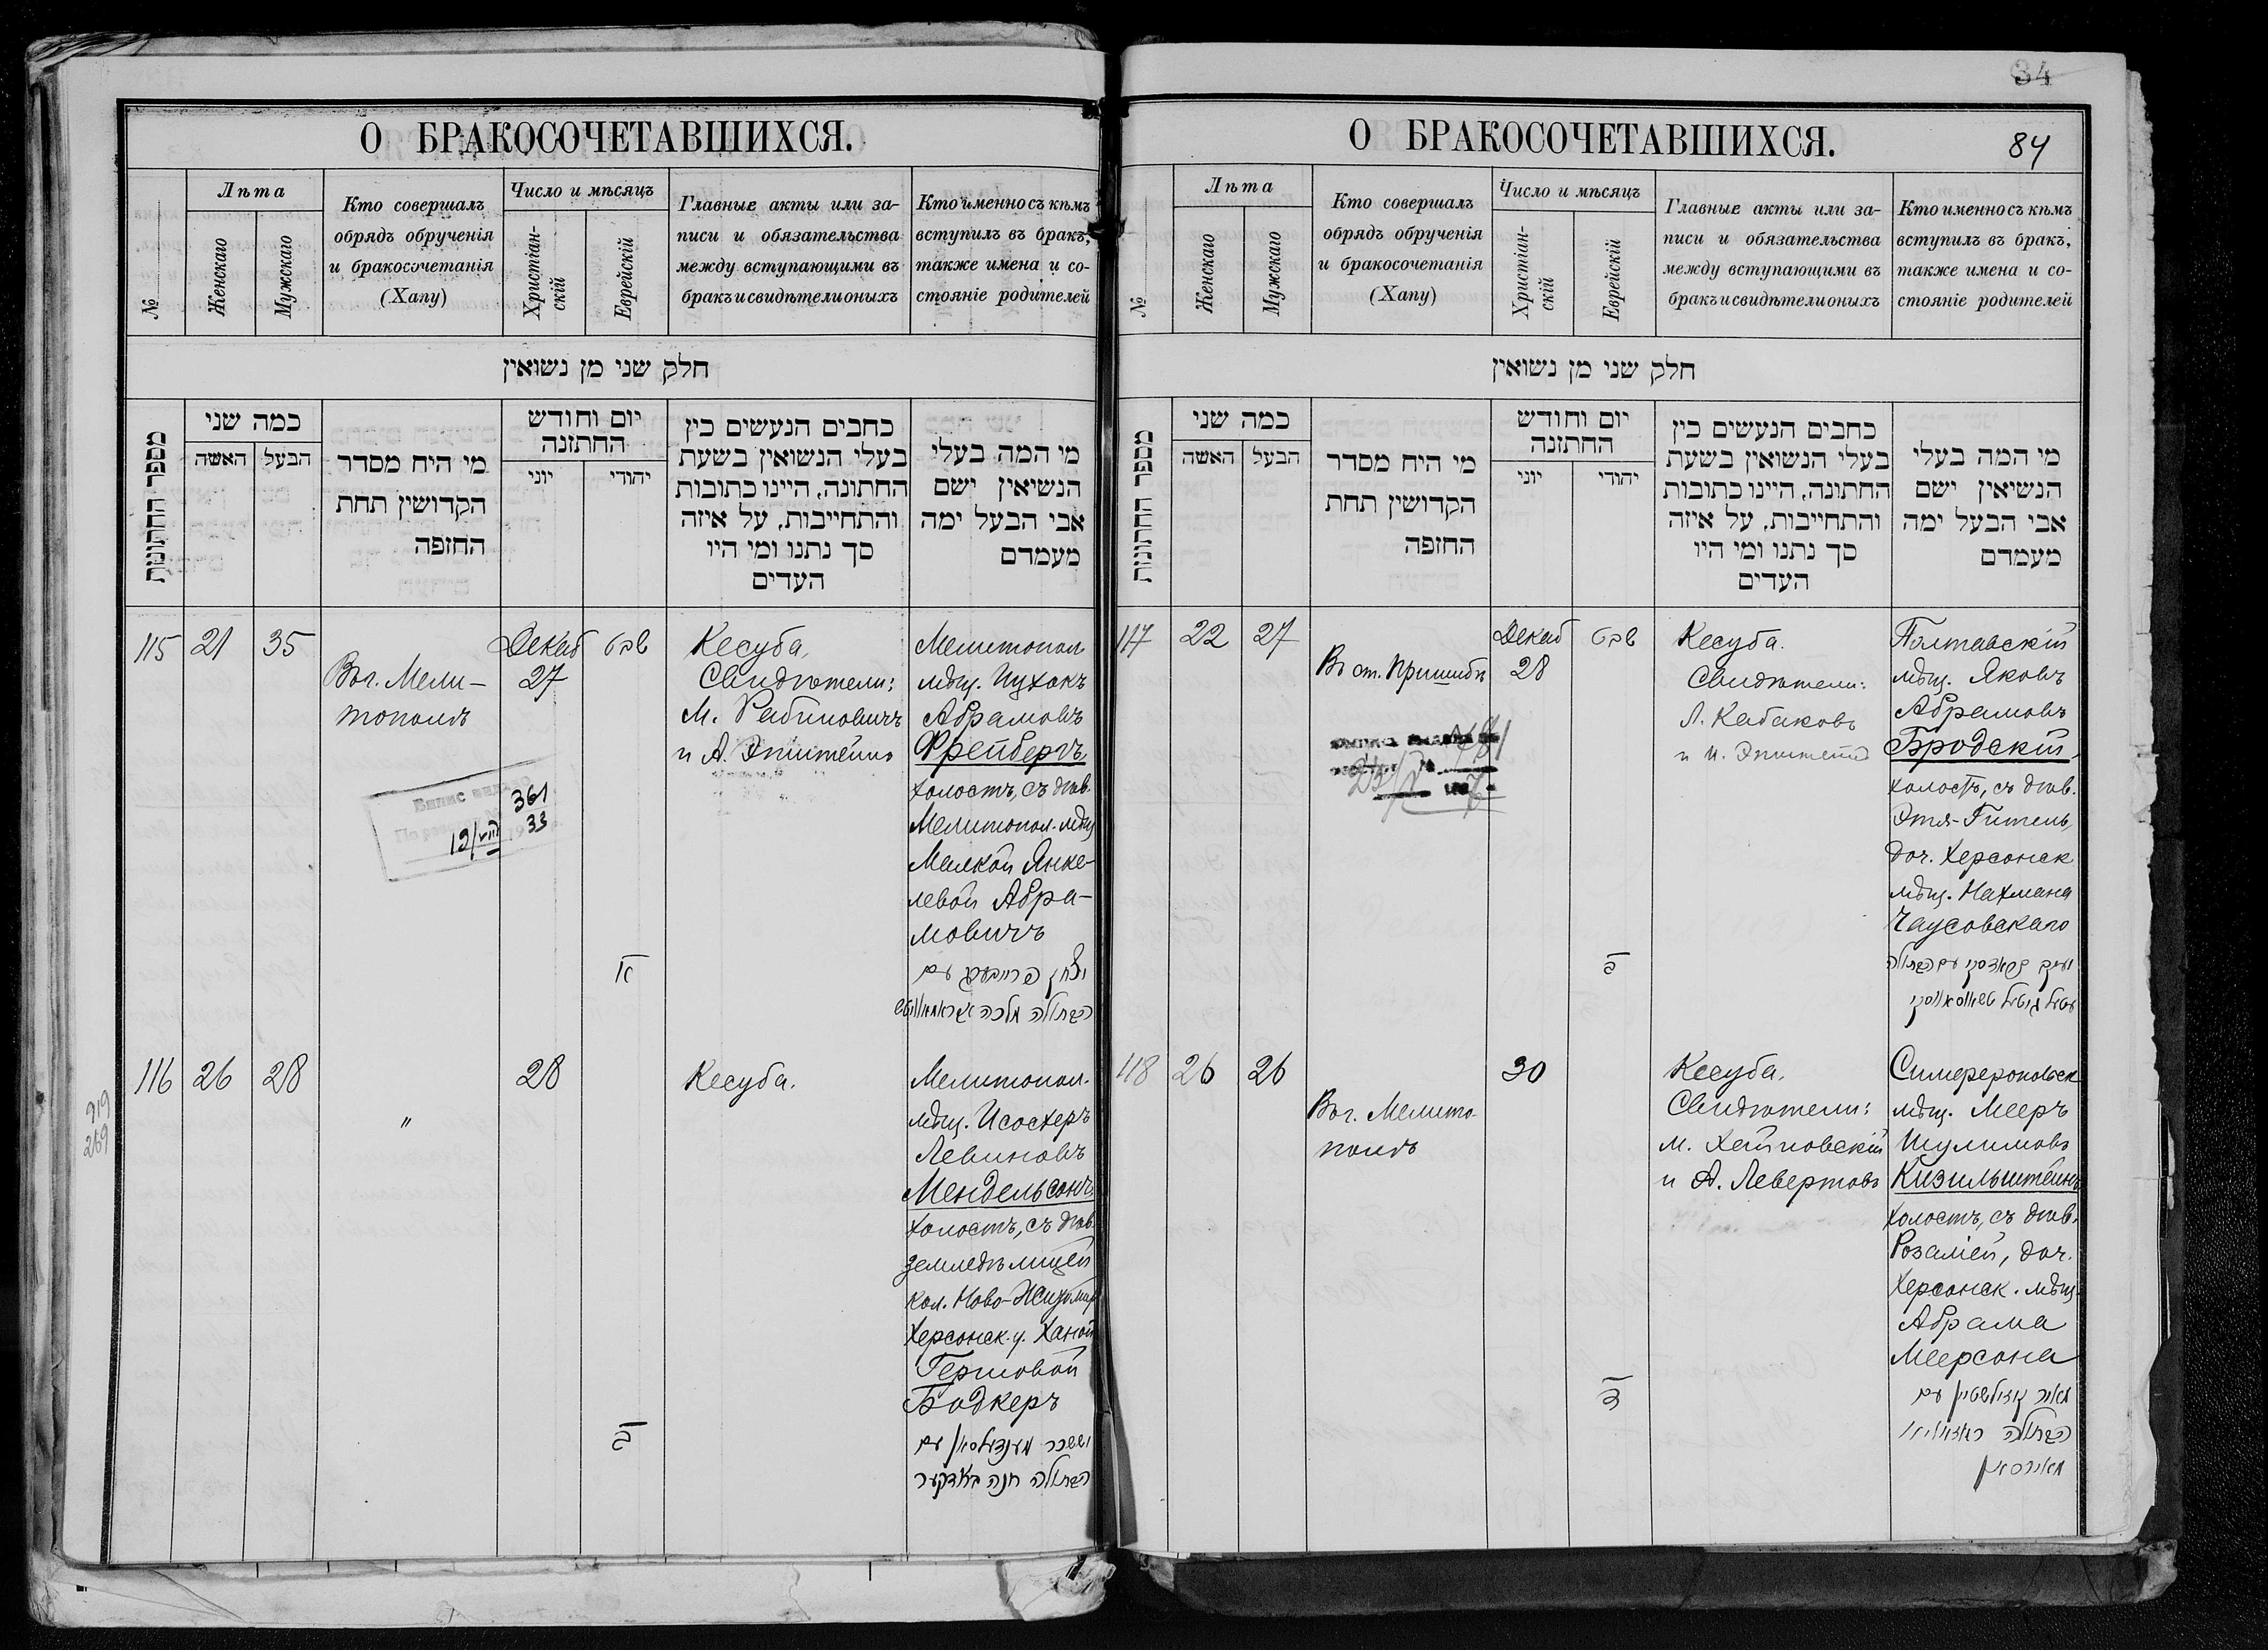 О БРАКОСОЧЕТАВШИХСЯ.
№
Лѣта
Женскаго
Мужскаго
Кто совершалъ
обрядъ обрученія
и бракосочетанія
(Хапу)
Число и мѣсяцъ
Христіан-
скій
Еврейскій
Главные акты или за-
писи и обязательства
между вступающими въ
бракъ и свидѣтели оныхъ
Кто именно съ кѣмъ
вступилъ въ бракъ,
также имена и со-
стояніе родителей
חלק שני מן נשואין
מספר החתונות
כמה שני
האשה
הבעל
מי היח מסדר
הקדושין תחת
החופה
יום וחודש
החתונה
יוני
יהודי
כחבים הנעשים כין
בעלי הנשואין בשעת
החתונה, היינו כתובות
והתחייבות, על איזה
סך נתנו ומי היו
העדים
מי המה בעלי
הנשיאין ישם
אבי הבעל ימה
מעמדם
115
21
35
Въ г. Мели-
тополѣ
Декаб
27
שבט
יא
Кесуба,
Свидѣтели:
М. Рабиновичъ
и А. Эпштейнъ
Мелитопол
мѣщ. Ицхокъ
Абрамовъ
Фрейбергъ,
холостъ, съ дѣв.
Мелитопол. мѣщ
Малкой Янке-
левой Абра-
мовичъ
יצחק פרייבערג עם
הבתולה מלכה אבראמאוויטש
361
19/VIII 33
116
26
28
"
28
יב
Кесуба.
Мелитопол.
мѣщ. Исохеръ
Левиновъ
Мендельсонъ,
холостъ, съ дѣв.
земледѣлицей
кол. Ново-Житомир
Херсонск. у. Ханой
Гершовой
Бодкеръ
יששכר מענדעלסאן עם
הבתולה חנה באדקער
919
269
О БРАКОСОЧЕТАВШИХСЯ.
84
34
№
Лѣта
Женскаго
Мужскаго
Кто совершалъ
обрядъ обрученія
и бракосочетанія
(Хапу)
Число и мѣсяцъ
Христіан-
скій
Еврейскій
Главные акты или за-
писи и обязательства
между вступающими въ
бракъ и свидѣтели оныхъ
Кто именно съ кѣмъ
вступилъ въ бракъ,
также имена и со-
стояніе родителей
חלק שני מן נשואין
מספר החתונות
כמה שני
האשה
הבעל
מי היח מסדר
הקדושין תחת
החופה
יום וחודש
החתונה
יוני
יהודי
כחבים הנעשים כין
בעלי הנשואין בשעת
החתונה, היינו כתובות
והתחייבות, על איזה
סך נתנו ומי היו
העדים
מי המה בעלי
הנשיאין ישם
אבי הבעל ימה
מעמדם
117
22
27
Въ ст. Пришибъ
Декаб
28
שבט
יב
Кесуба.
Свидѣтели:
Л. Кабаковъ
и И. Эпштейнъ
Полтавскій
мѣщ. Яковъ
Абрамовъ
Бродскій,
холостъ, съ дѣв.
Этя-Гитель,
доч. Херсонск
мѣщ. Нахмана
Чаусовскаго
יעקב בראדסקי עם הבתולה
עטיל גיטיל טשויסאווסקי
118
26
26
Въ г. Мелито-
полѣ
30
יד
Кесуба.
Свидѣтели:
М. Хейповскій
и А. Левертовъ
Симферопольск
мѣщ. Мееръ
Шулимовъ
Кизильштейнъ
холостъ, съ дѣв.
Розаліей, доч.
Херсонск. мѣщ.
Абрама
Меерсона
מאיר קיזילשטיין עם
הבתולה ראזאליא
מאירסאן